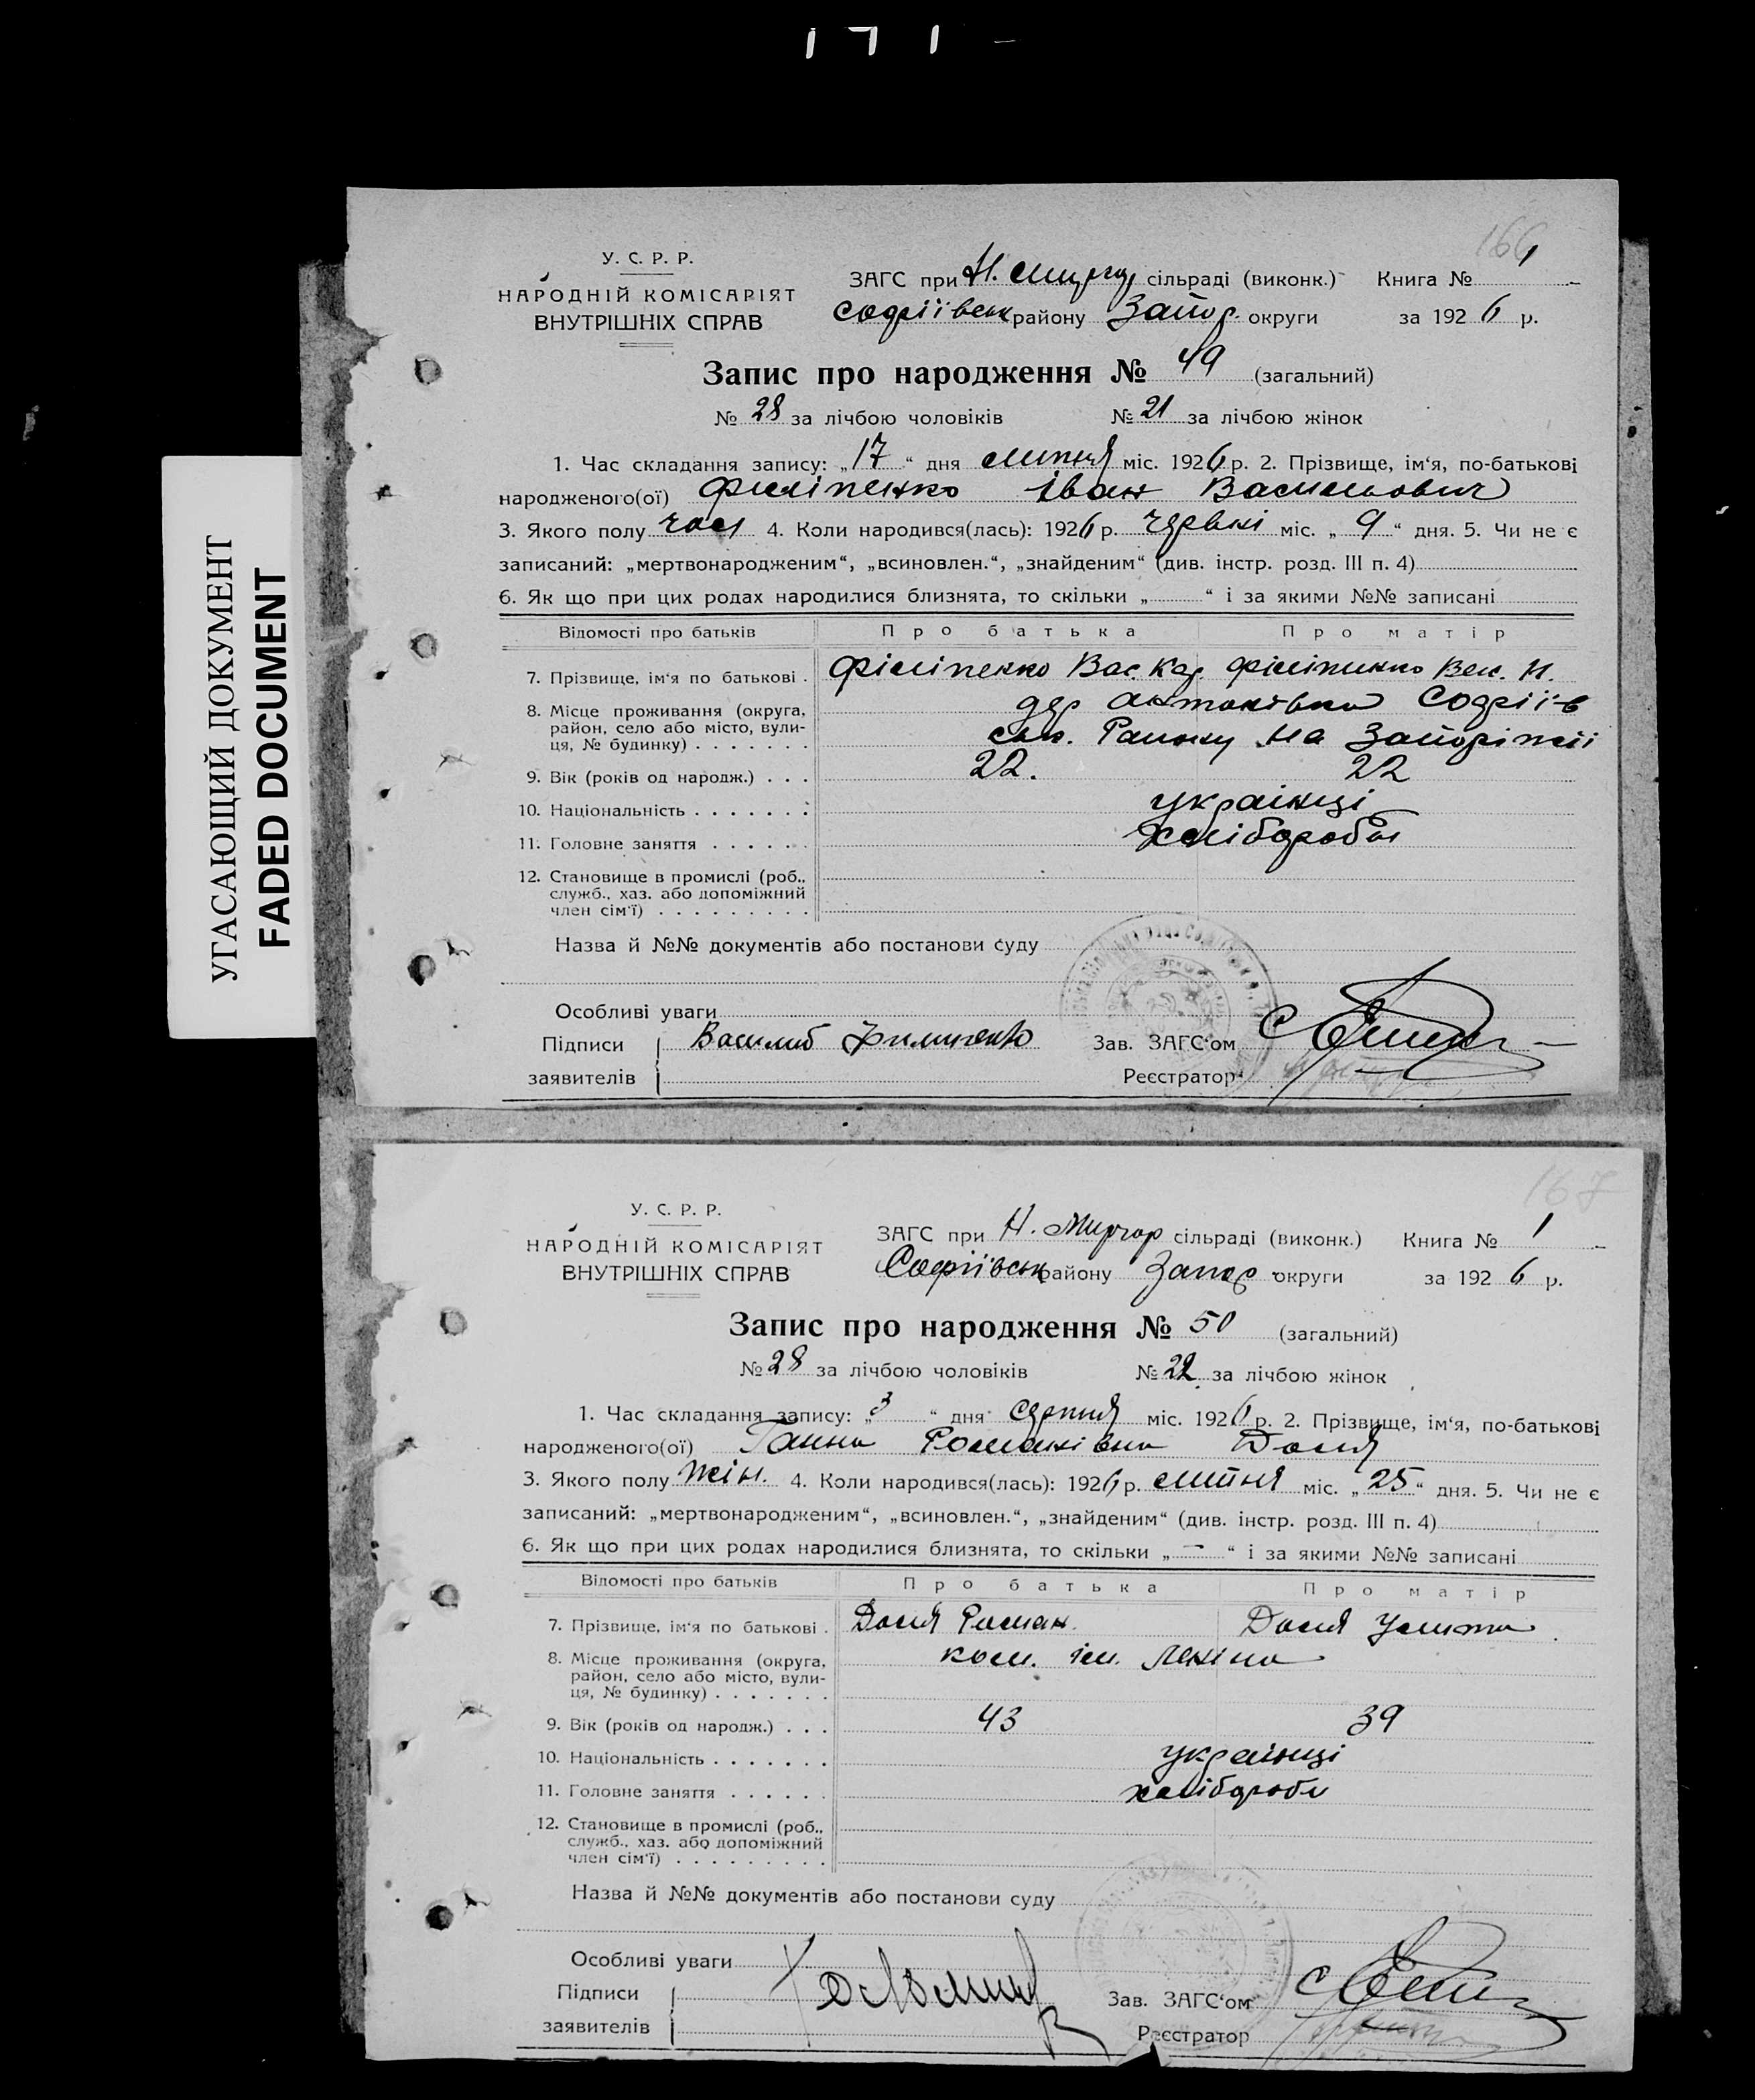 171
УГАСАЮЩИЙ ДОКУМЕНТ
FADED DOCUMENT
166
У. С. Р. Р.
НАРОДНІЙ КОМІСАРІЯТ
ВНУТРІШНІХ СПРАВ
ЗАГС при Н. Миргор сільраді (виконк.) Книга № 1
Софіївськ району Запор. округи за 1926 р.
Запис про народження № 49 (загальний)
№ 28 за лічбою чоловіків № 21 за лічбою жінок
1. Час складання запису: „17“ дня липня міс. 1926 р. 2. Прізвище, ім‘я, по-батькові
народженого(ої) Філіпенко Іван Васильович
3. Якого полу чол 4. Коли народився(лась): 1926 р. червні міс. „9“ дня. 5. Чи не є
записаний: „мертвонародженим“, „всиновлен.“, „знайденим“ (див. інстр. розд. III п. 4)
6. Як що при цих родах народилися близнята, то скільки „ “ і за якими №№ записані
Відомості про батьків Про батька Про матір
7. Прізвище, ім‘я по батькові . Філіпенко Вас. Кар. Філіпинко Век. Н.
8. Місце проживання (округа, дер Антонівка Софіїв
район, село або місто, вули- Району на Запоріжії
ця, № будинку) . . . . . . .
9. Вік (років од народж.) . . . 22. 22
10. Національність . . . . . . . українці
11. Головне заняття . . . . . . хліборобы
12. Становище в промислі (роб.,
служб., хаз. або допоміжний
член сім‘ї) . . . . . . . . .
Назва й №№ документів або постанови суду
Особливі уваги
Підписи Василь Филипенко Зав. ЗАГС‘ом
заявителів Реєстратор
167
У. С. Р. Р.
НАРОДНІЙ КОМІСАРІЯТ
ВНУТРІШНІХ СПРАВ
ЗАГС при Н. Миргор сільраді (виконк.) Книга № 1
Софіївськ району Запор округи за 1926 р.
Запис про народження № 50 (загальний)
№ 28 за лічбою чоловіків № 22 за лічбою жінок
1. Час складання запису: „3“ дня серпня міс. 1926 р. 2. Прізвище, ім‘я, по-батькові
народженого(ої) Ганна Романівна Доля
3. Якого полу жін. 4. Коли народився(лась): 1926 р. липня міс. „25“ дня. 5. Чи не є
записаний: „мертвонародженим“, „всиновлен.“, „знайденим“ (див. інстр. розд. III п. 4)
6. Як що при цих родах народилися близнята, то скільки „—“ і за якими №№ записані
Відомості про батьків Про батька Про матір
7. Прізвище, ім‘я по батькові . Доля Роман. Доля Улита
8. Місце проживання (округа, ком. ім. Леніна
район, село або місто, вули-
ця, № будинку) . . . . . . .
9. Вік (років од народж.) . . . 43 39
10. Національність . . . . . . . українці
11. Головне заняття . . . . . . хлібороби
12. Становище в промислі (роб.,
служб., хаз. або допоміжний
член сім‘ї) . . . . . . . . .
Назва й №№ документів або постанови суду
Особливі уваги
Підписи Зав. ЗАГС‘ом
заявителів Реєстратор